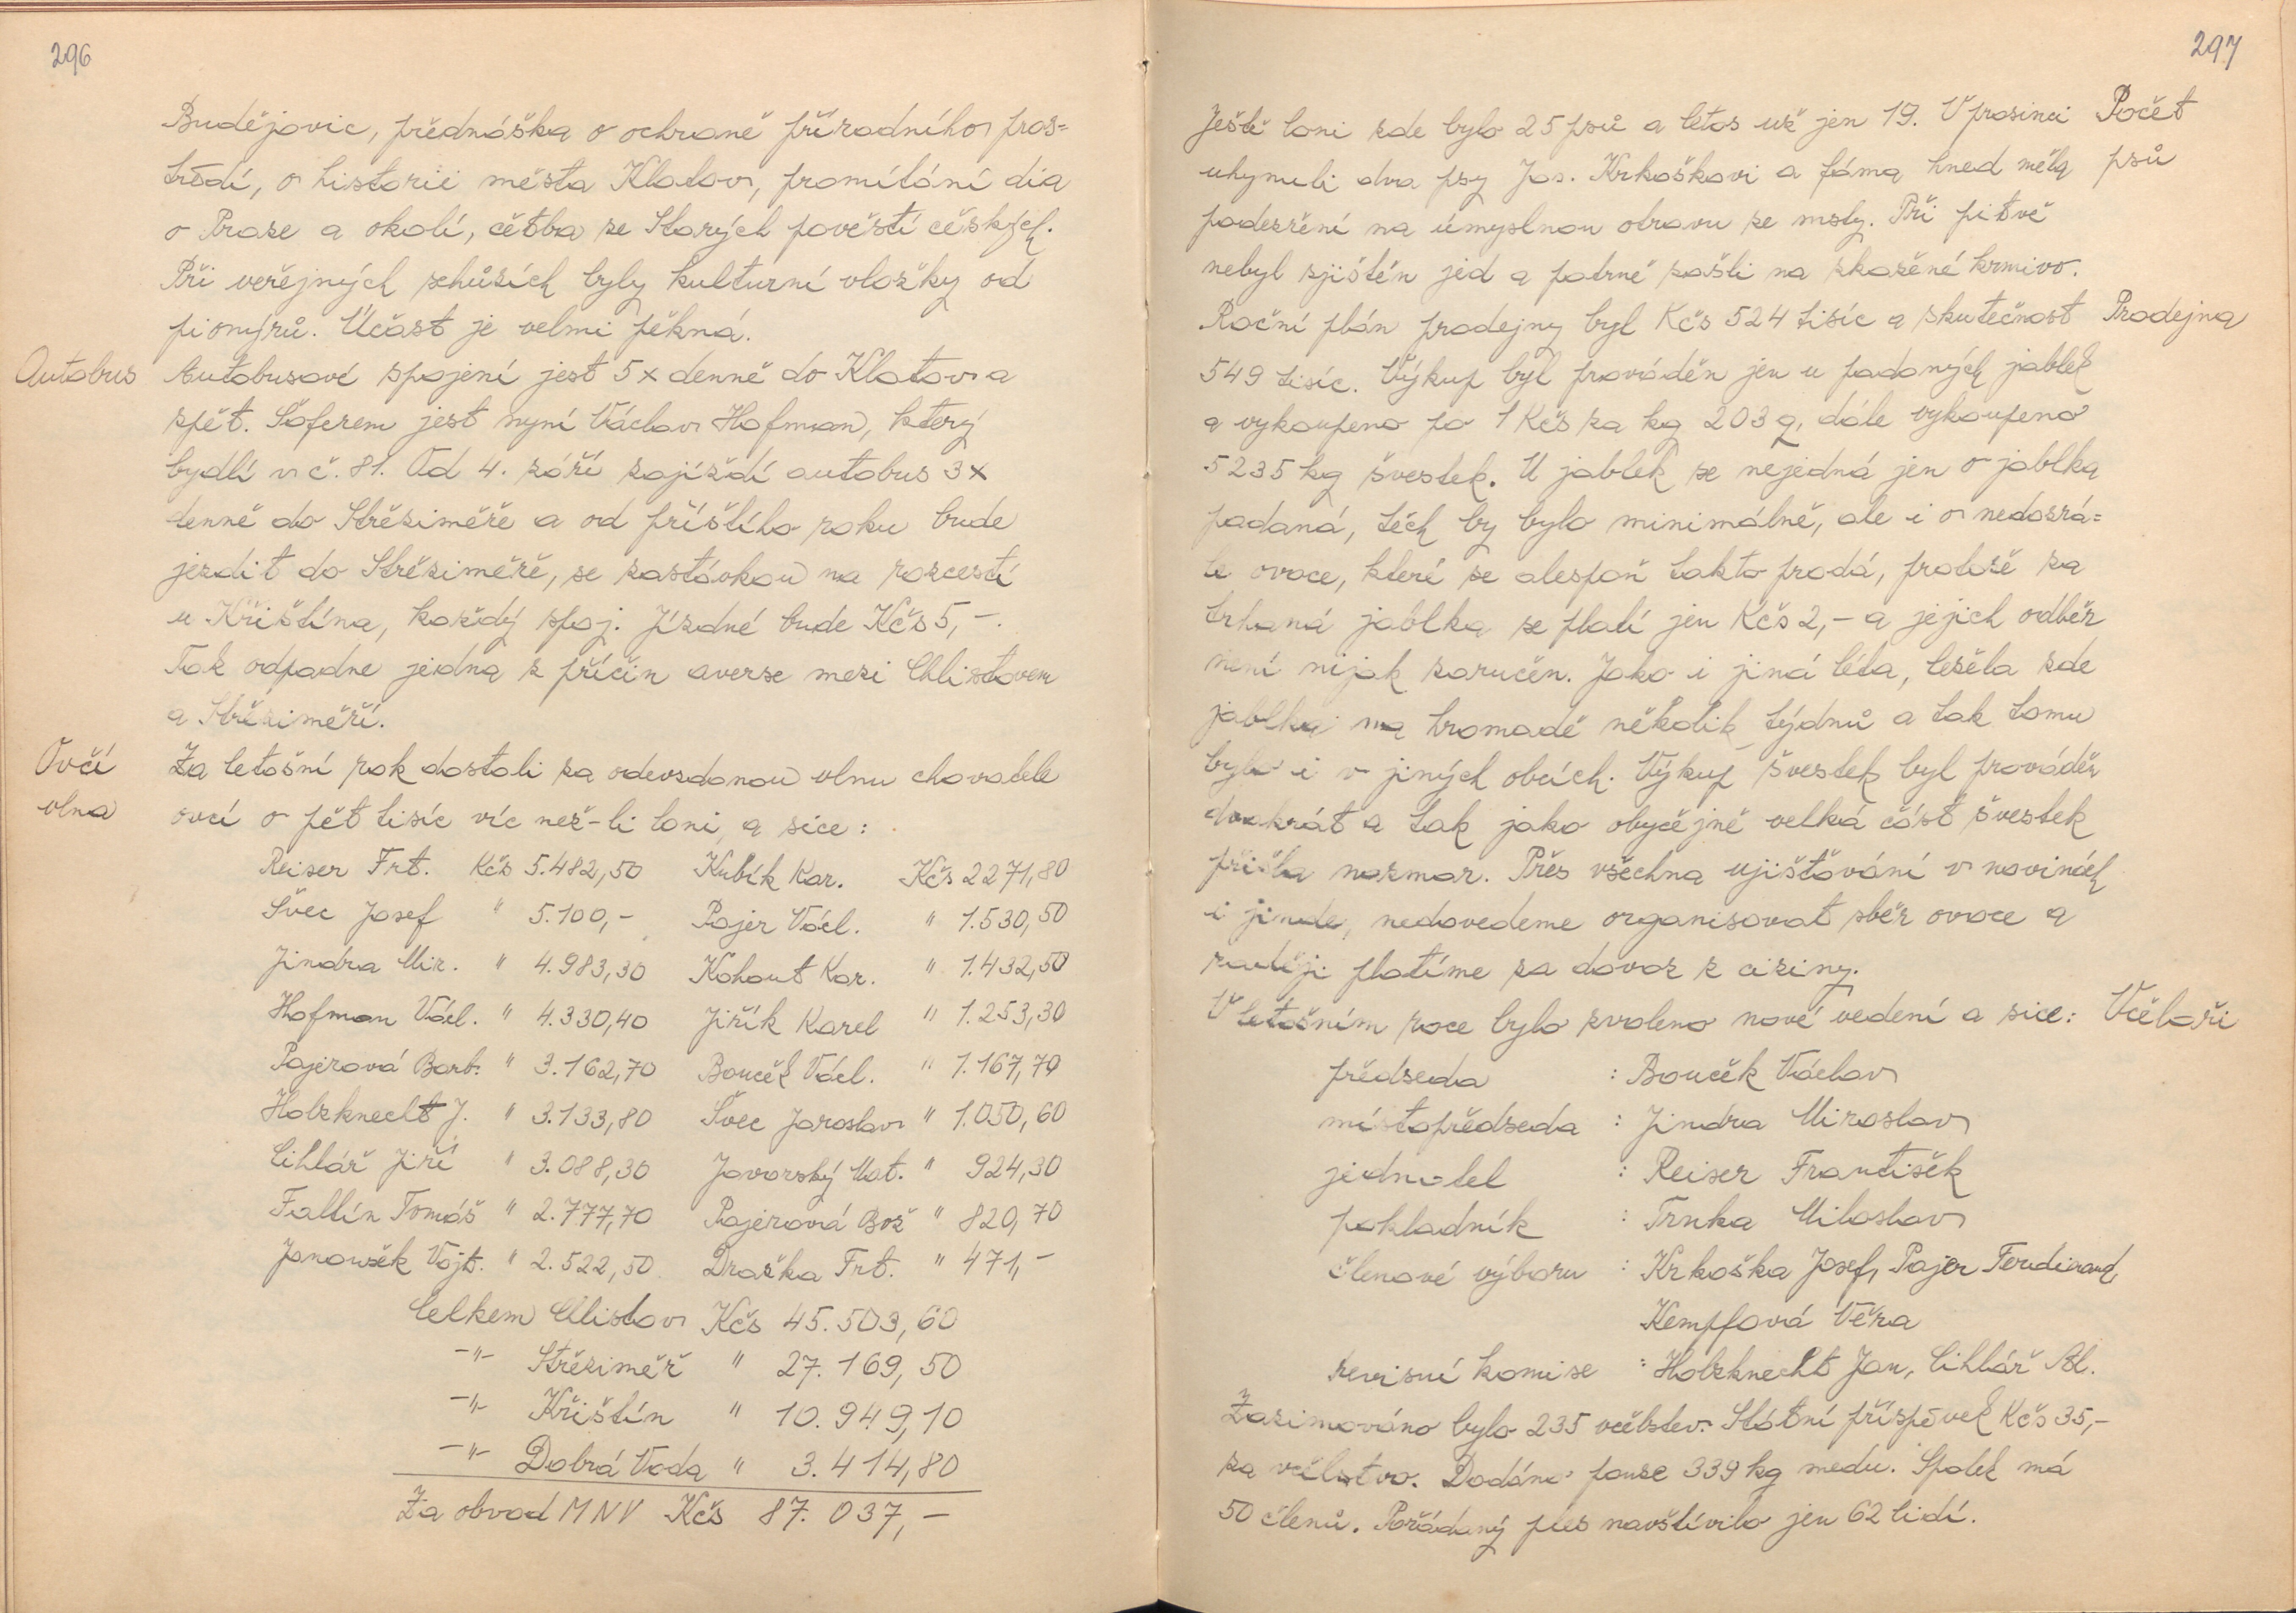 296
Budějovic, přednáška o ochraně přírodního pros=
tředí, o historii města Klatov, promítání dia
o Praze a okolí, četba ze Starých pověstí českých.
Při veřejných schůzích byly kulturní vložky od
pionýrů. Účast je velmi pěkná.
Autobus
Autobusové spojení jest 5x denně do Klatov a
zpět. Šoferem jest nyní Václav Hofman, který
bydlí v č. 81. Od 4. září zajíždí autobus 3x
denně do Střeziměře a od příštího roku bude
jezdit do Střeziměře, se zastávkou na rozcestí
u Křištína, každý spoj. Jízdné bude Kčs 5,-.
Tak odpadne jedna z příčin averse mezi Chlistovem
a Střeziměří.
Ovčí
vlna
Za letošní rok dostali za odevzdanou vlnu chovatelé
ovcí o pět tisíc víc než-li loni a sice:
Reiser Frt. Kčs 5.482,50 Kubík Kar. Kčs 2271,80
Švec Josef " 5.100,- Pajer Václ. " 1.530,50
Jindra Mir. " 4.983,30 Kohout Kar. " 1.432,50
Hofman Václ. " 4.330,40 Jiřík Karel " 1.253,30
Pajerová Barb. " 3.162,70 Bouček Václ. " 1.167,70
Holzknecht J. " 3.133,80 Švec Jaroslav " 1.050,60
Cihlář Jiří " 3.088,30 Javorský Mat. " 924,30
Faltín Tomáš " 2.777,70 Pajerová Bož " 820,70
Janoušek Vojt. " 2.522,50 Draška Frt. " 471,-
Celkem Chlistov Kčs 45.503,60
-"- Střeziměř " 27.169,50
-"- Křištín " 10.949,10
-"- Dobrá Voda " 3.414,80
Za obvod MNV Kčs 87.037,-
297
Ještě loni zde bylo 25 psů a letos už jen 19. V prosinci
Počet
psů
uhynuli dva psy Jos. Krkoškovi a fáma hned měla
podezření na úmyslnou otravu ze msty. Při pitvě
nebyl zjištěn jed a patrně zašli na zkažené krmivo.
Roční plán prodejny byl Kčs 524 tisíc a skutečnost
Prodejna
549 tisíc. Výkup byl prováděn jen u padaných jablek
a vykoupeno po 1 Kčs za kg 203 q, dále vykoupeno
5235 kg švestek. U jablek se nejedná jen o jablka
padaná, těch by bylo minimálně, ale i o nedozrá=
lé ovoce, které se alespoň takto prodá, protože za
trhaná jablka se platí jen Kčs 2,- a jejich odběr
není nijak zaručen. Jako i jiná léta, ležela zde
jablka na hromadě několik týdnů a tak tomu
bylo i v jiných obcích. Výkup švestek byl prováděn
dvakrát a tak jako obyčejně velká část švestek
přišla nazmar. Přes všechna ujišťování v novinách
i jinde, nedovedeme organisovat sběr ovoce a
raději platíme za dovoz z ciziny.
V letošním roce bylo zvoleno nové vedení a sice:
Včelaři
předseda : Bouček Václav
místopředseda : Jindra Miroslav
jednatel : Reiser František
pokladník : Trnka Miloslav
členové výboru : Krkoška Josef, Pajer Ferdinand,
Kempfová Věra
revisní komise : Holzknecht Jan, Cihlář Al.
Zazimováno bylo 235 včelstev. Státní příspěvek Kčs 35,-
za včelstvo. Dodáno pouze 339 kg medu. Spolek má
50 členů. Pořádaný ples navštívilo jen 62 lidí.